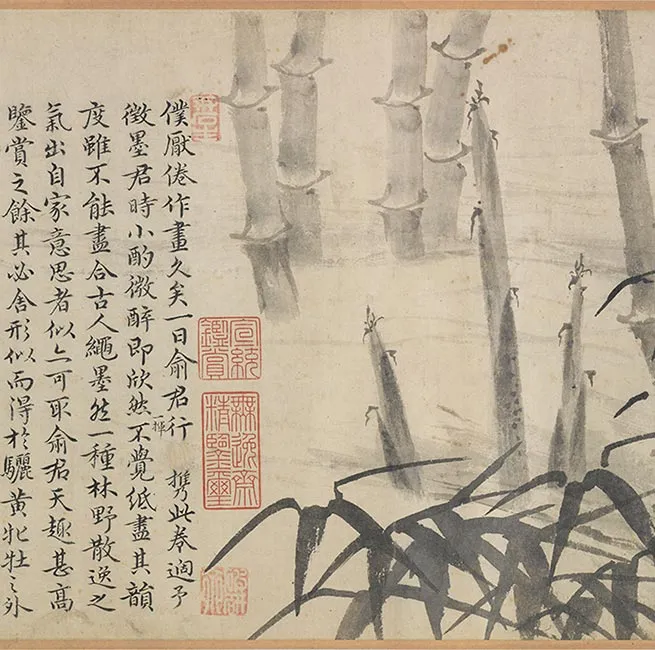 宣統
鑑賞
無逸齋
精鑒璽
僕厭倦作畫久矣一日俞君行 攜此卷過予
徵墨君時小酌微醉即欣然一揮不覺紙盡其韻
度雖不能盡合古人繩墨然一種林野散逸之
氣出自家意思者似亦可取俞君天趣甚高
鑒賞之餘其必舍形似而得於驪黃牝牡之外